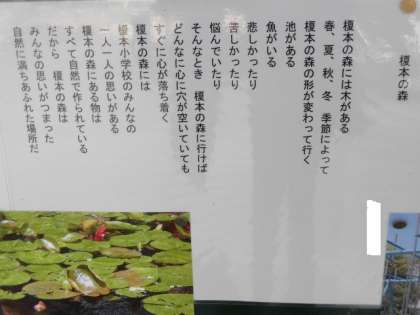 榎本の森
榎本の森には木がある
春、夏、秋、冬 季節によって
榎本の森の形が変わって行く
池がある
魚がいる
悲しかったり
苦しかったり
悩んでいたり
そんなとき 榎本の森に行けば
どんなに心に穴が空いていても
すぐに心が落ち着く
榎本の森には
榎本小学校のみんなの
一人一人の思いがある
榎本の森にある物は
すべて自然で作られている
だから 榎本の森は
みんなの思いがつまった
自然に満ちあふれた場所だ